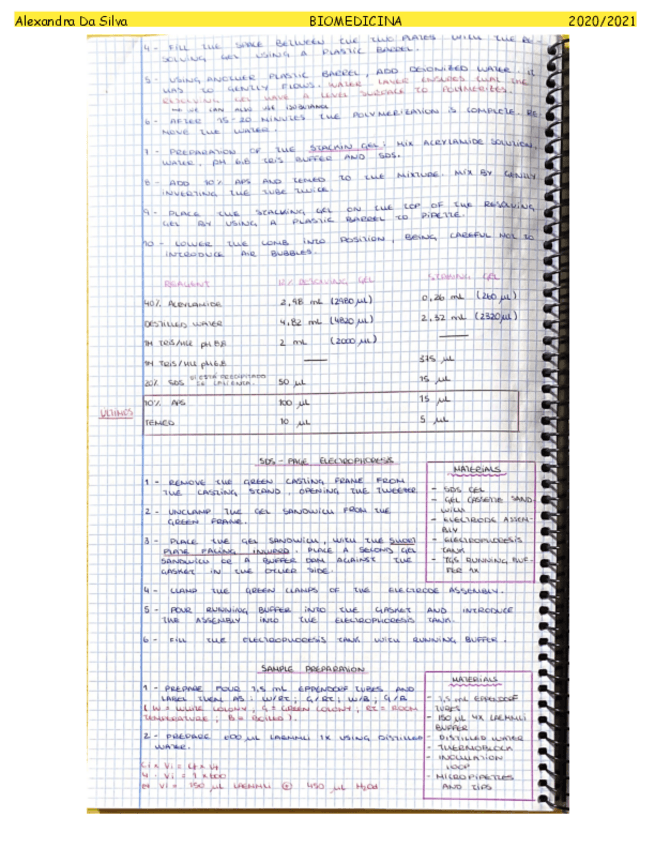 Alexandra Da Silva BIOMEDICINA 2020/2021
4 - FILL THE SPACE BETWEEN THE TWO PLATES WITH THE RE-
SOLVING GEL USING A PLASTIC BAREEL.
5 - USING ANOTHER PLASTIC BAREEL, ADD DEIONIZED WATER. IT
HAS TO GENTLY FLOWS. WATER LAYER ENSURES THAT THE
RESOLVING GEL HAVE A LEVEL SURFACE TO POLYMERIZES.
6 - AFTER 15-20 MINUTES THE POLYMERIZATION IS COMPLETE. RE
MOVE THE WATER.
7 - PREPARATION OF THE STACKIN GEL: MIX ACRYLAMIDE SOLUTION,
WATER, PH 6.8 TRIS BUFFER AND SDS.
8 - ADD 10% APS AND TEMED TO THE MIXTURE. MIX BY GENTLY
INVERTING THE TUBE TWICE.
9 - PLACE THE STACKING GEL ON THE TOP OF THE RESOLVING
GEL BY USING A PLASTIC BAREEL TO PIPETTE.
10 - LOWER THE COMB INTO POSITION, BEING CAREFUL NOT TO
INTRODUCE AIR BUBBLES.
REAGENT RESOLVING GEL STACKING GEL
40% ACRYLAMIDE 2,98 mL (2980 µL) 0,26 mL (260 µL)
DISTILLED WATER 4,82 mL (4820 µL) 2,32 mL (2320 µL)
TRIS/HCL pH 8.8 2 mL (2000 µL) —
1M TRIS/HCL pH 6.8 — 375 µL
20% SDS SI ESTÁ PRECIPITADO SE CALIENTA 50 µL 15 µL
ULTIMOS
10% APS 100 µL 15 µL
TEMED 10 µL 5 µL
SDS - PAGE ELECTROPHORESIS
1 - REMOVE THE GREEN CASTING FRAME FROM
THE CASTING STAND, OPENING THE TWEETER
2 - UNCLAMP THE GEL SANDWICH FROM THE
GREEN FRAME.
3 - PLACE THE GEL SANDWICH, WITH THE SHORT
PLATE FACING INWARD. PLACE A SECOND GEL
SANDWICH OR A BUFFER DAM AGAINST THE
GASKET IN THE OTHER SIDE.
MATERIALS
- SDS GEL
- GEL CASSETTE SAND-
WICH
- ELECTRODE ASSEM-
BLY
- ELECTROPHORESIS
TANK
- TGS RUNNING BUF-
FER 1X
4 - CLAMP THE GREEN CLAMPS OF THE ELECTRODE ASSEMBLY.
5 - POUR RUNNING BUFFER INTO THE GASKET AND INTRODUCE
THE ASSEMBLY INTO THE ELECTROPHORESIS TANK.
6 - FILL THE ELECTROPHORESIS TANK WITH RUNNING BUFFER.
SAMPLE PREPARATION
1 - PREPARE FOUR 1,5 mL EPPENDORF TUBES AND
LABEL THEM AS: W/RT; G/RT; W/B; G/B
(W = WHITE COLONY, G = GREEN COLONY, RT = ROOM
TEMPERATURE; B = BOILED).
2 - PREPARE 600 µL LAEMMLI 1X USING DISTILLED
WATER.
Ci x Vi = Cf x Vf
4 · Vi = 1 x 600
Vi = 150 µL LAEMMLI + 450 µL H2Od
MATERIALS
- 1,5 mL EPPENDORF
TUBES
- 150 µL 4X LAEMMLI
BUFFER
- DISTILLED WATER
- THERMOBLOCK
- INOCULATION
LOOP
- MICROPIPETTES
AND TIPS